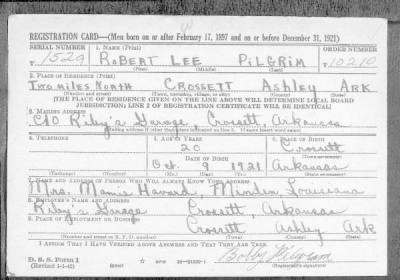 REGISTRATION CARD—(Men born on or after February 17, 1897 and on or before December 31, 1921)
SERIAL NUMBER 1. NAME (Print) ORDER NUMBER
T 1529 ROBERT LEE PILGRIM 10210
(First) (Middle) (Last)
2. PLACE OF RESIDENCE (Print)
TWO MILES NORTH CROSSETT ASHLEY ARK
(Number and street) (Town, township, village, or city) (County) (State)
[THE PLACE OF RESIDENCE GIVEN ON THE LINE ABOVE WILL DETERMINE LOCAL BOARD
JURISDICTION; LINE 2 OF REGISTRATION CERTIFICATE WILL BE IDENTICAL]
3. MAILING ADDRESS
C/O Riley's Garage, Crossett, Arkansas
[Mailing address if other than place indicated on line 2. If same insert word same]
4. TELEPHONE 5. AGE IN YEARS 6. PLACE OF BIRTH
20 Crossett
DATE OF BIRTH (Town or county)
Oct. 9 1921 Arkansas
7. NAME AND ADDRESS OF PERSON WHO WILL ALWAYS KNOW YOUR ADDRESS
Mrs. Mamie Havard, Minden, Louisiana
8. EMPLOYER'S NAME AND ADDRESS
Riley's Garage Crossett, Arkansas
9. PLACE OF EMPLOYMENT OR BUSINESS
Crossett Ashley Ark
(Number and street or R. F. D. number) (Town) (County) (State)
I AFFIRM THAT I HAVE VERIFIED ABOVE ANSWERS AND THAT THEY ARE TRUE.
D. S. S. Form 1
(Revised 1-1-42) GPO Bobby Pilgrim
(Registrant's signature)